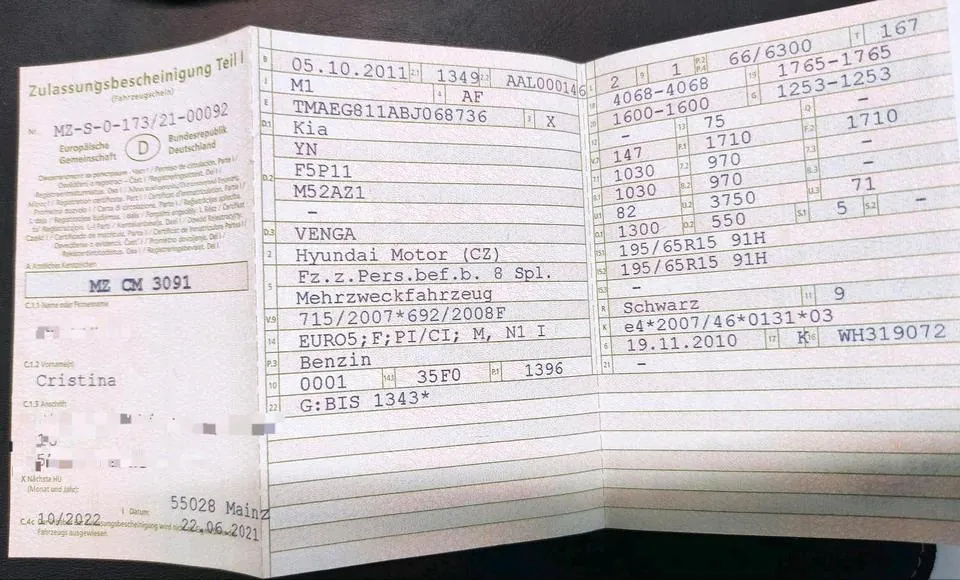 Zulassungsbescheinigung Teil I
(Fahrzeugschein)
Nr. MZ-S-0-173/21-00092
Europäische Gemeinschaft D Bundesrepublik Deutschland
A Amtliches Kennzeichen
MZ CM 3091
C.1.1 Name oder Firmenname
C.1.2 Vorname(n)
Cristina
C.1.3 Anschrift
X Nächste HU
(Monat und Jahr):
10/2022
I Datum:
55028 Mainz
22.06.2021
B 05.10.2011 2.1 1349 2.2 AAL000146
J M1 4 AF
E TMAEG811ABJ068736 3 X
D.1 Kia
YN
D.2 F5P11
M52AZ1
–
D.3 VENGA
2 Hyundai Motor (CZ)
5 Fz.z.Pers.bef.b. 8 Spl.
Mehrzweckfahrzeug
V.9 715/2007*692/2008F
14 EURO5;F;PI/CI; M, N1 I
P.3 Benzin
10 0001 14.1 35F0 P.1 1396
22 G:BIS 1343*
L 2 9 1 P.2 66/6300 T 167
18 4068-4068 19 1765-1765
20 1600-1600 G 1253-1253
– 13 75 Q –
V.7 147 F.1 1710 F.2 1710
7.1 1030 7.2 970 7.3 –
8.1 1030 8.2 970 8.3 –
U.1 82 U.2 3750 U.3 71
O.1 1300 O.2 550 S.1 5 S.2 –
15.1 195/65R15 91H
15.2 195/65R15 91H
15.3 –
R Schwarz 11 9
K e4*2007/46*0131*03
6 19.11.2010 17 K 16 WH319072
21 –